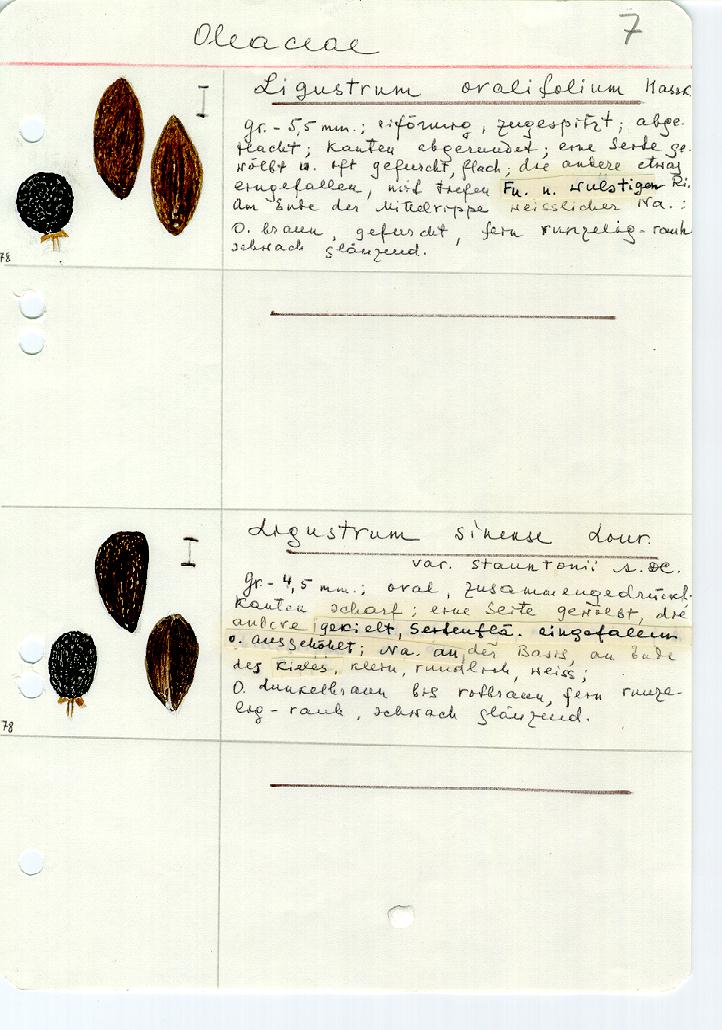 Oleaceae
7
Ligustrum ovalifolium Hassk.
gr. - 5,5 mm.; eiförmig, zugespitzt; abge-
flacht; Kanten abgerundet; eine Seite ge-
wölbt u. oft gefurcht, flach; die andere etwas
eingefallen, mit tiefen Fu. u. wulstigen Ri.
Am Ende der Mittelrippe weisslicher Na.:
O. braun, gefurcht, fein runzelig-rauh
schwach glänzend.
78
Ligustrum sinense Lour.
var. stauntonii A. DC.
gr. - 4,5 mm.; oval, zusammengedrückt.
Kanten scharf; eine Seite gewölbt, die
andere gekielt, Seitenflä. eingefallen
o. ausgehöhlt; Na. an der Basis, am Ende
des Kieles, klein, rundlich, weiss;
O. dunkelbraun bis rotbraun, fein runze-
lig-rauh, schwach glänzend.
78